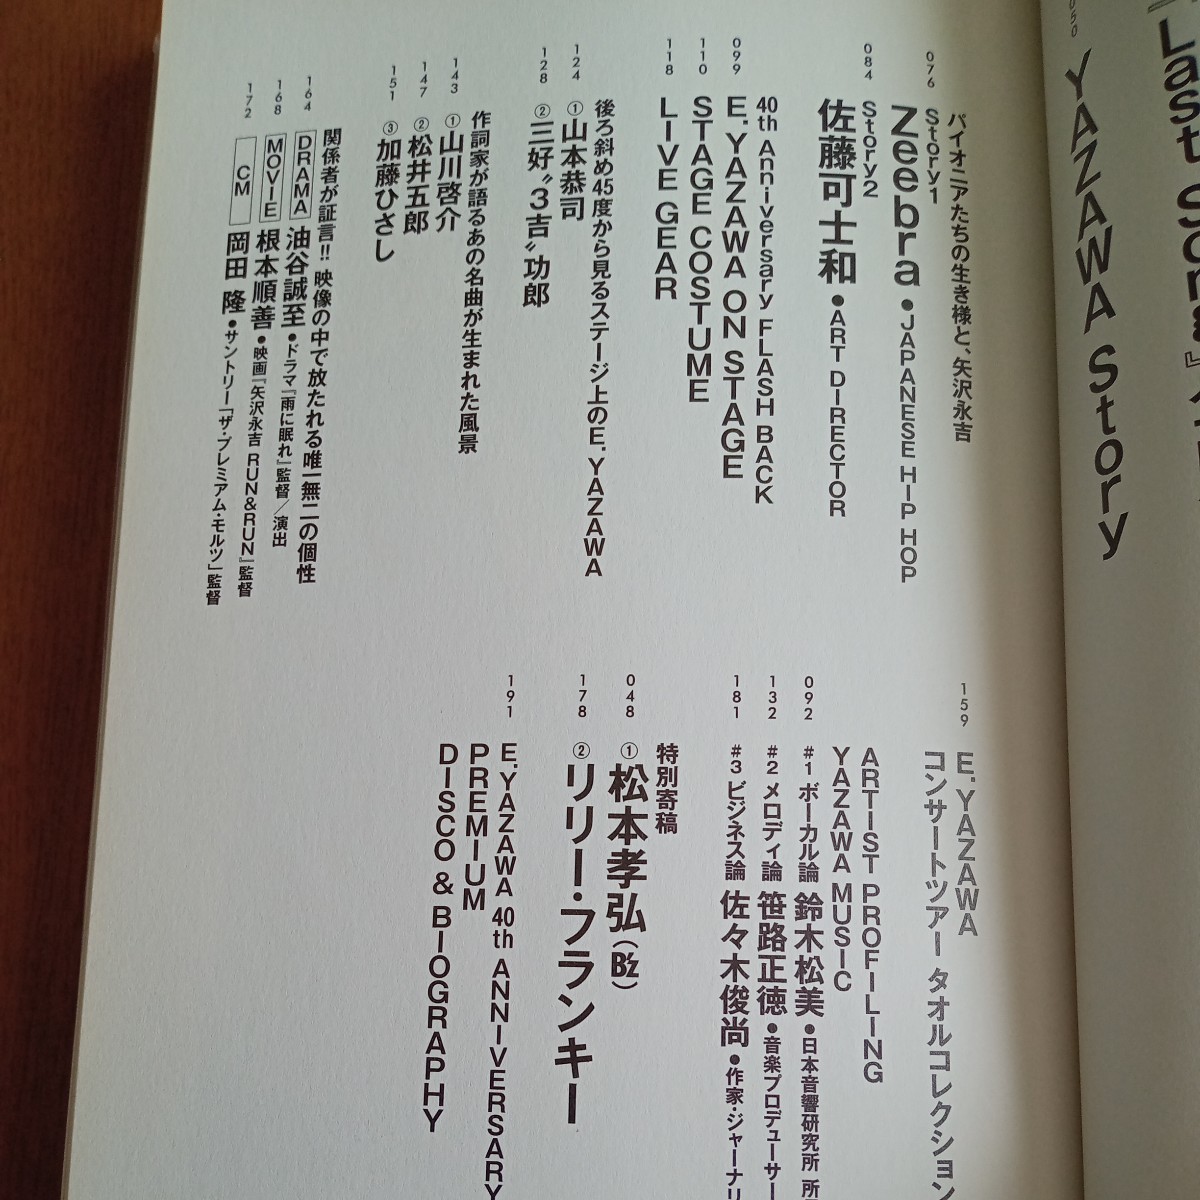 Last Song』
050
YAZAWA Story
パイオニアたちの生き様と、矢沢永吉
076
Story1
Zeebra ●JAPANESE HIP HOP
084
Story2
佐藤可士和 ●ART DIRECTOR
40th Anniversary FLASH BACK
099
E. YAZAWA ON STAGE
110
STAGE COSTUME
118
LIVE GEAR
後ろ斜め45度から見るステージ上のE. YAZAWA
124
①山本恭司
128
②三好〝3吉〟功郎
作詞家が語るあの名曲が生まれた風景
143
①山川啓介
147
②松井五郎
151
③加藤ひさし
関係者が証言!! 映像の中で放たれる唯一無二の個性
164
DRAMA 油谷誠至 ●ドラマ『雨に眠れ』監督/演出
168
MOVIE 根本順善 ●映画『矢沢永吉 RUN&RUN』監督
172
CM 岡田 隆 ●サントリー「ザ・プレミアム・モルツ」監督
159
E. YAZAWA
コンサートツアー タオルコレクション
ARTIST PROFILING
YAZAWA MUSIC
092
#1 ボーカル論 鈴木松美 ●日本音響研究所 所
132
#2 メロディ論 笹路正徳 ●音楽プロデューサー
181
#3 ビジネス論 佐々木俊尚 ●作家・ジャーナリ
特別寄稿
048
①松本孝弘(B'z)
178
②リリー・フランキー
191
E. YAZAWA 40th ANNIVERSARY
PREMIUM
DISCO & BIOGRAPHY